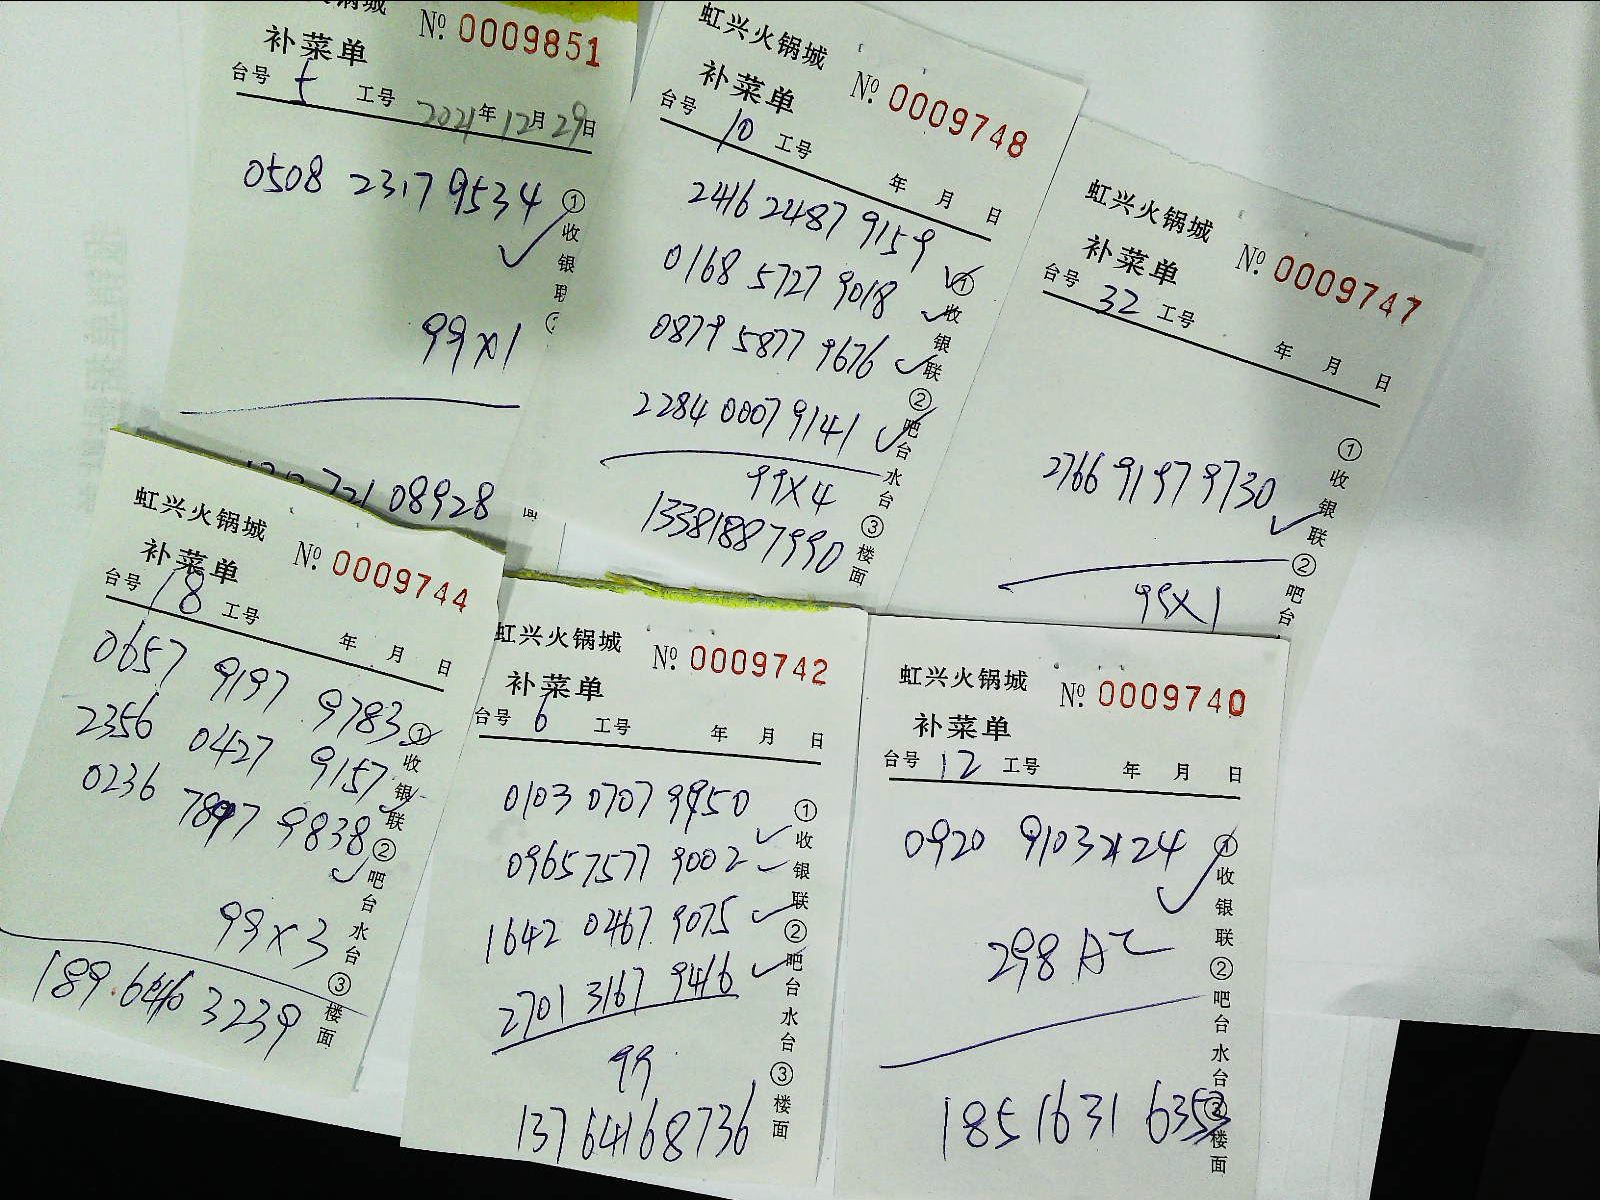 火锅城 No. 0009851
补菜单
台号 5 工号 2021年12月29日
0508 2317 9534
99x1
08928
①收银联
虹兴火锅城 No. 0009748
补菜单
台号 10 工号 年 月 日
2416 2487 9159
0168 5727 9018
0879 5877 9676
2284 0007 9141
99x4
13381887990
①收银联②吧台水台③楼面
虹兴火锅城 No. 0009747
补菜单
台号 32 工号 年 月 日
2766 9197 9730
99x1
①收银联②吧台
虹兴火锅城 No. 0009744
补菜单
台号 18 工号 年 月 日
0657 9197 9783
2356 0427 9157
0236 7897 9838
99x3
189 6446 3239
①收银联②吧台水台③楼面
虹兴火锅城 No. 0009742
补菜单
台号 6 工号 年 月 日
0103 0707 9950
0965 7577 9002
1642 0467 9075
2701 3167 9416
99
13764168736
①收银联②吧台水台③楼面
虹兴火锅城 No. 0009740
补菜单
台号 12 工号 年 月 日
0920 9103 2124
298 A2
185 1631 6353
①收银联②吧台水台③楼面